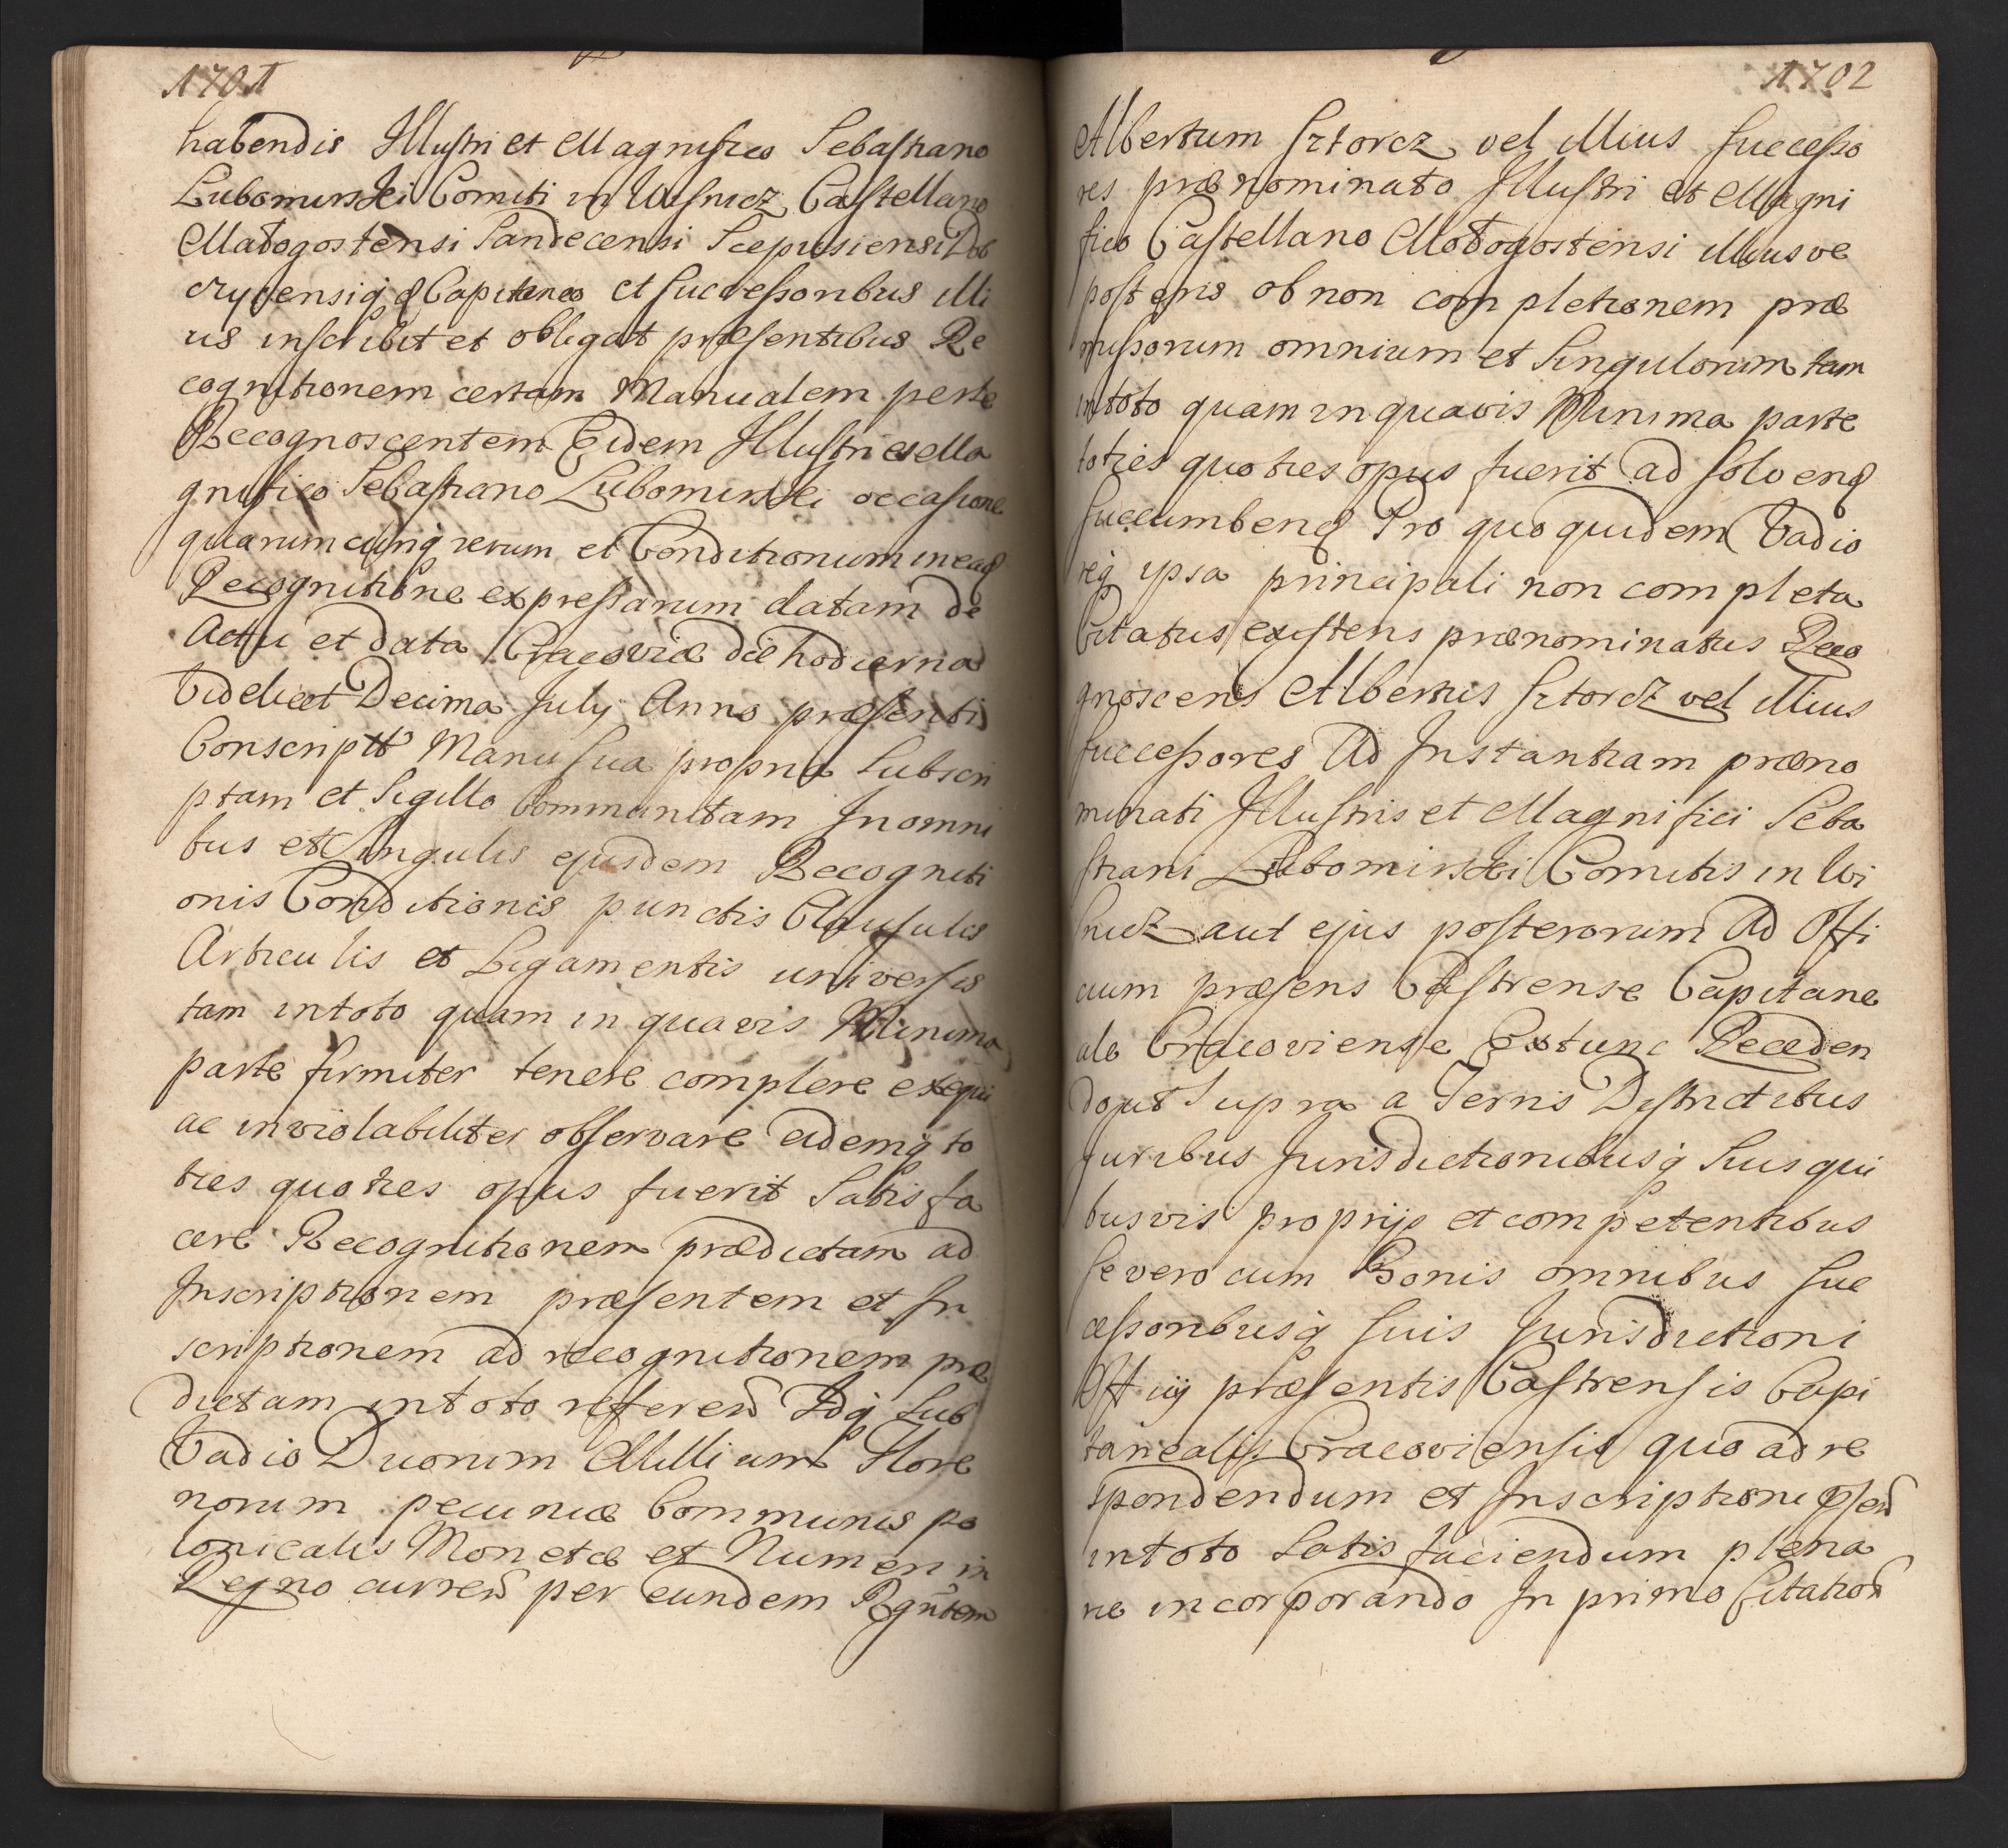 1701
habendis Illustri et Magnifico Sebastiano
Lubomirski Comiti in Wisnicz Castellano
Małogostensi Sandecensi Scepusiensi Dob
czycensiq₃ Capitaneo et Successoribus illi
us inscribit et obligat præsentibus Re
cognitionem certam Manualem per se
Recognoscentem Eidem Illustri et Ma
gnifico Sebastiano Lubomirski occasione
quarumcunq₃ rerum et Conditionum in ead
Recognitione expressarum datam de
Actu et data Cracoviæ die hodierna
Videlicet Decima July Anno præsenti
Conscript Manu sua propria Subscri
ptam et Sigillo Communitam In omni
bus et Singulis ejusdem Recogniti
onis Conditionis punctis Clausulis
Articulis et Ligamentis universis
tam in toto quam in quavis Minima
parte firmiter tenere complere exequi
ac inviolabiliter observare eidemq₃ to
ties quoties opus fuerit Satisfa
cere Recognitionem prædictam ad
Inscriptionem præsentem et In
scriptionem ad recognitionem præ
dictam in toto referen Idq₃ Sub
Vadio Duorum Millium Flore
norum pecuniæ Communis po
lonicalis Monetæ et Numeri in
Regno curren per eundem Rgntem
1702
Albertum Sztorcz vel illius Successo
res prænominato Illustri et Magni
fico Castellano Małogostensi illiusve
posteris ob non completionem præ
missorum omnium et Singulorum tam
in toto quam in quavis Minima parte
toties quoties opus fuerit ad solvend
succumbend Pro quo quidem Vadio
req₃ ipsa principali non completa
Citatus existens prænominatus Reco
gnoscens Albertus Sztorcz vel illius
successores Ad Instantiam præno
minati Illustris et Magnifici Seba
stiani Lubomirski Comitis in Wi
snicz aut ejus posterorum Ad Offi
cium præsens Castrense Capitane
ale Cracoviense Extunc Receden
do ut Supra a Terris Districtibus
Juribus Jurisdictionibusq₃ Suis qui
busvis proprijs et competentibus
se vero cum Bonis omnibus suc
cessoribusq₃ suis Jurisdictioni
Officij præsentis Castrensis Capi
tanealis Cracoviensis quo ad re
spondendum et Inscriptioni Psen
in toto Satisfaciendum plena
rie incorporando In primo Citation